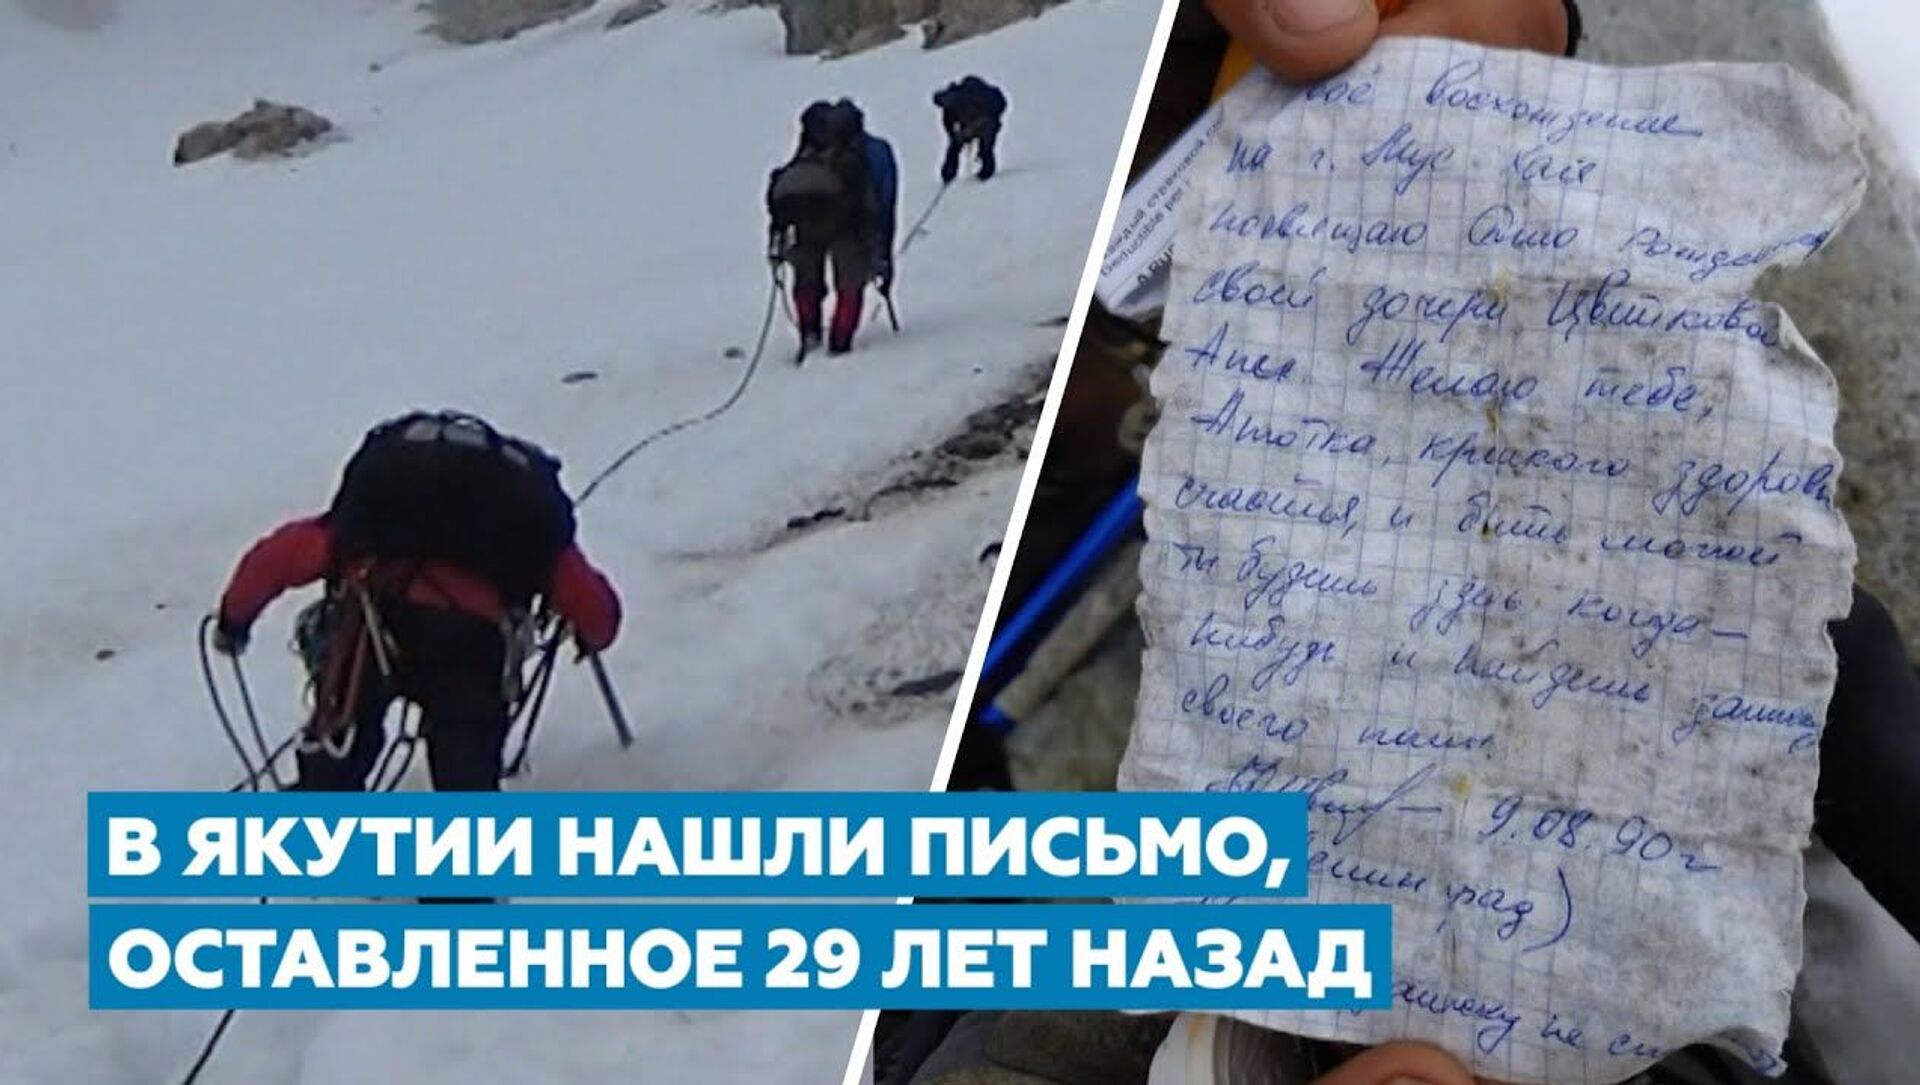 восхождение
на г. Мус Хая
посвящаю Дню Рождения
своей дочери Цветковой
Ани. Желаю тебе,
Анютка, крепкого здоровья
счастья, и быть может
ты будешь здесь когда-
нибудь и найдешь записку
своего папы.
9.08.90 г
В ЯКУТИИ НАШЛИ ПИСЬМО,
ОСТАВЛЕННОЕ 29 ЛЕТ НАЗАД